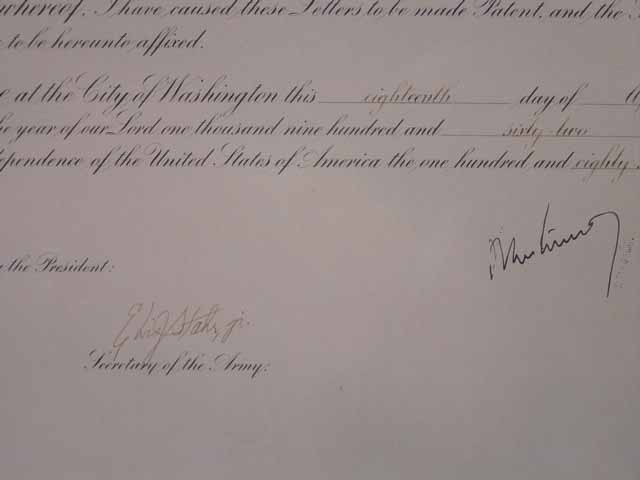 whereof, I have caused these Letters to be made Patent, and the
to be hereunto affixed.
at the City of Washington this eighteenth day of
year of our Lord one thousand nine hundred and sixty-two
of the United States of America the one hundred and eighty
the President:
Elvis J. Stahr, jr.
Secretary of the Army: